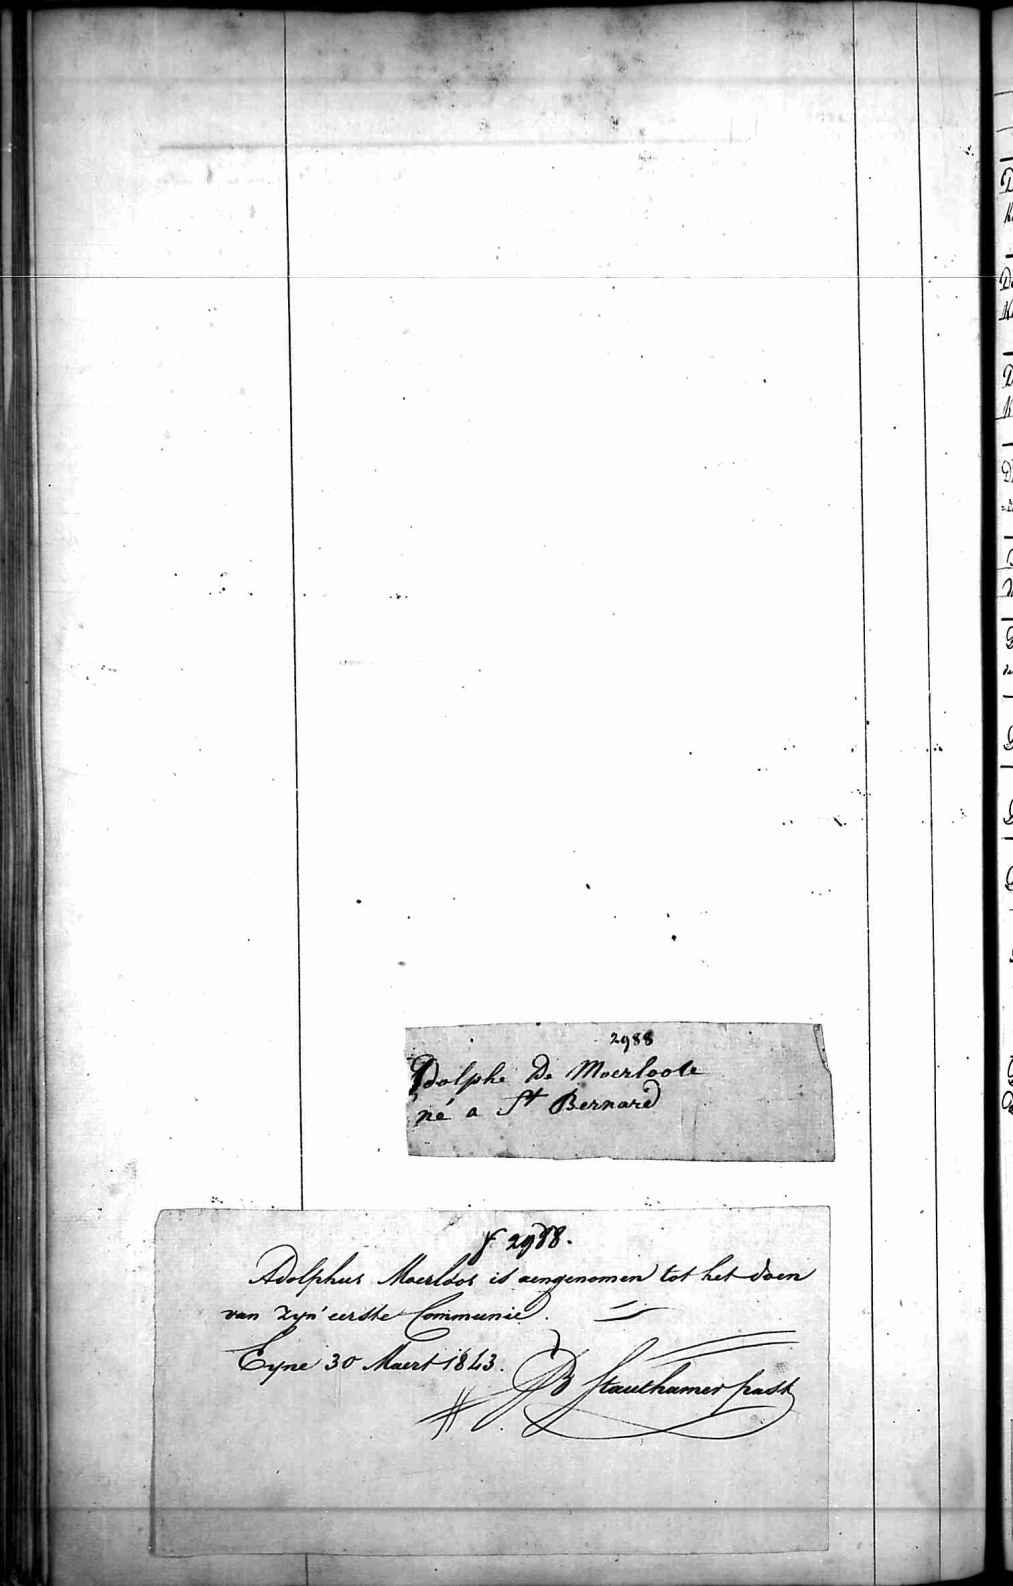 2988
Adolphe De Moerloose
né a St Bernard
f 2988.
Adolphus Moerloos is aengenomen tot het doen
van zyn' eerste Communie.
Eyne 30 Maert 1843.
Stauthamer past